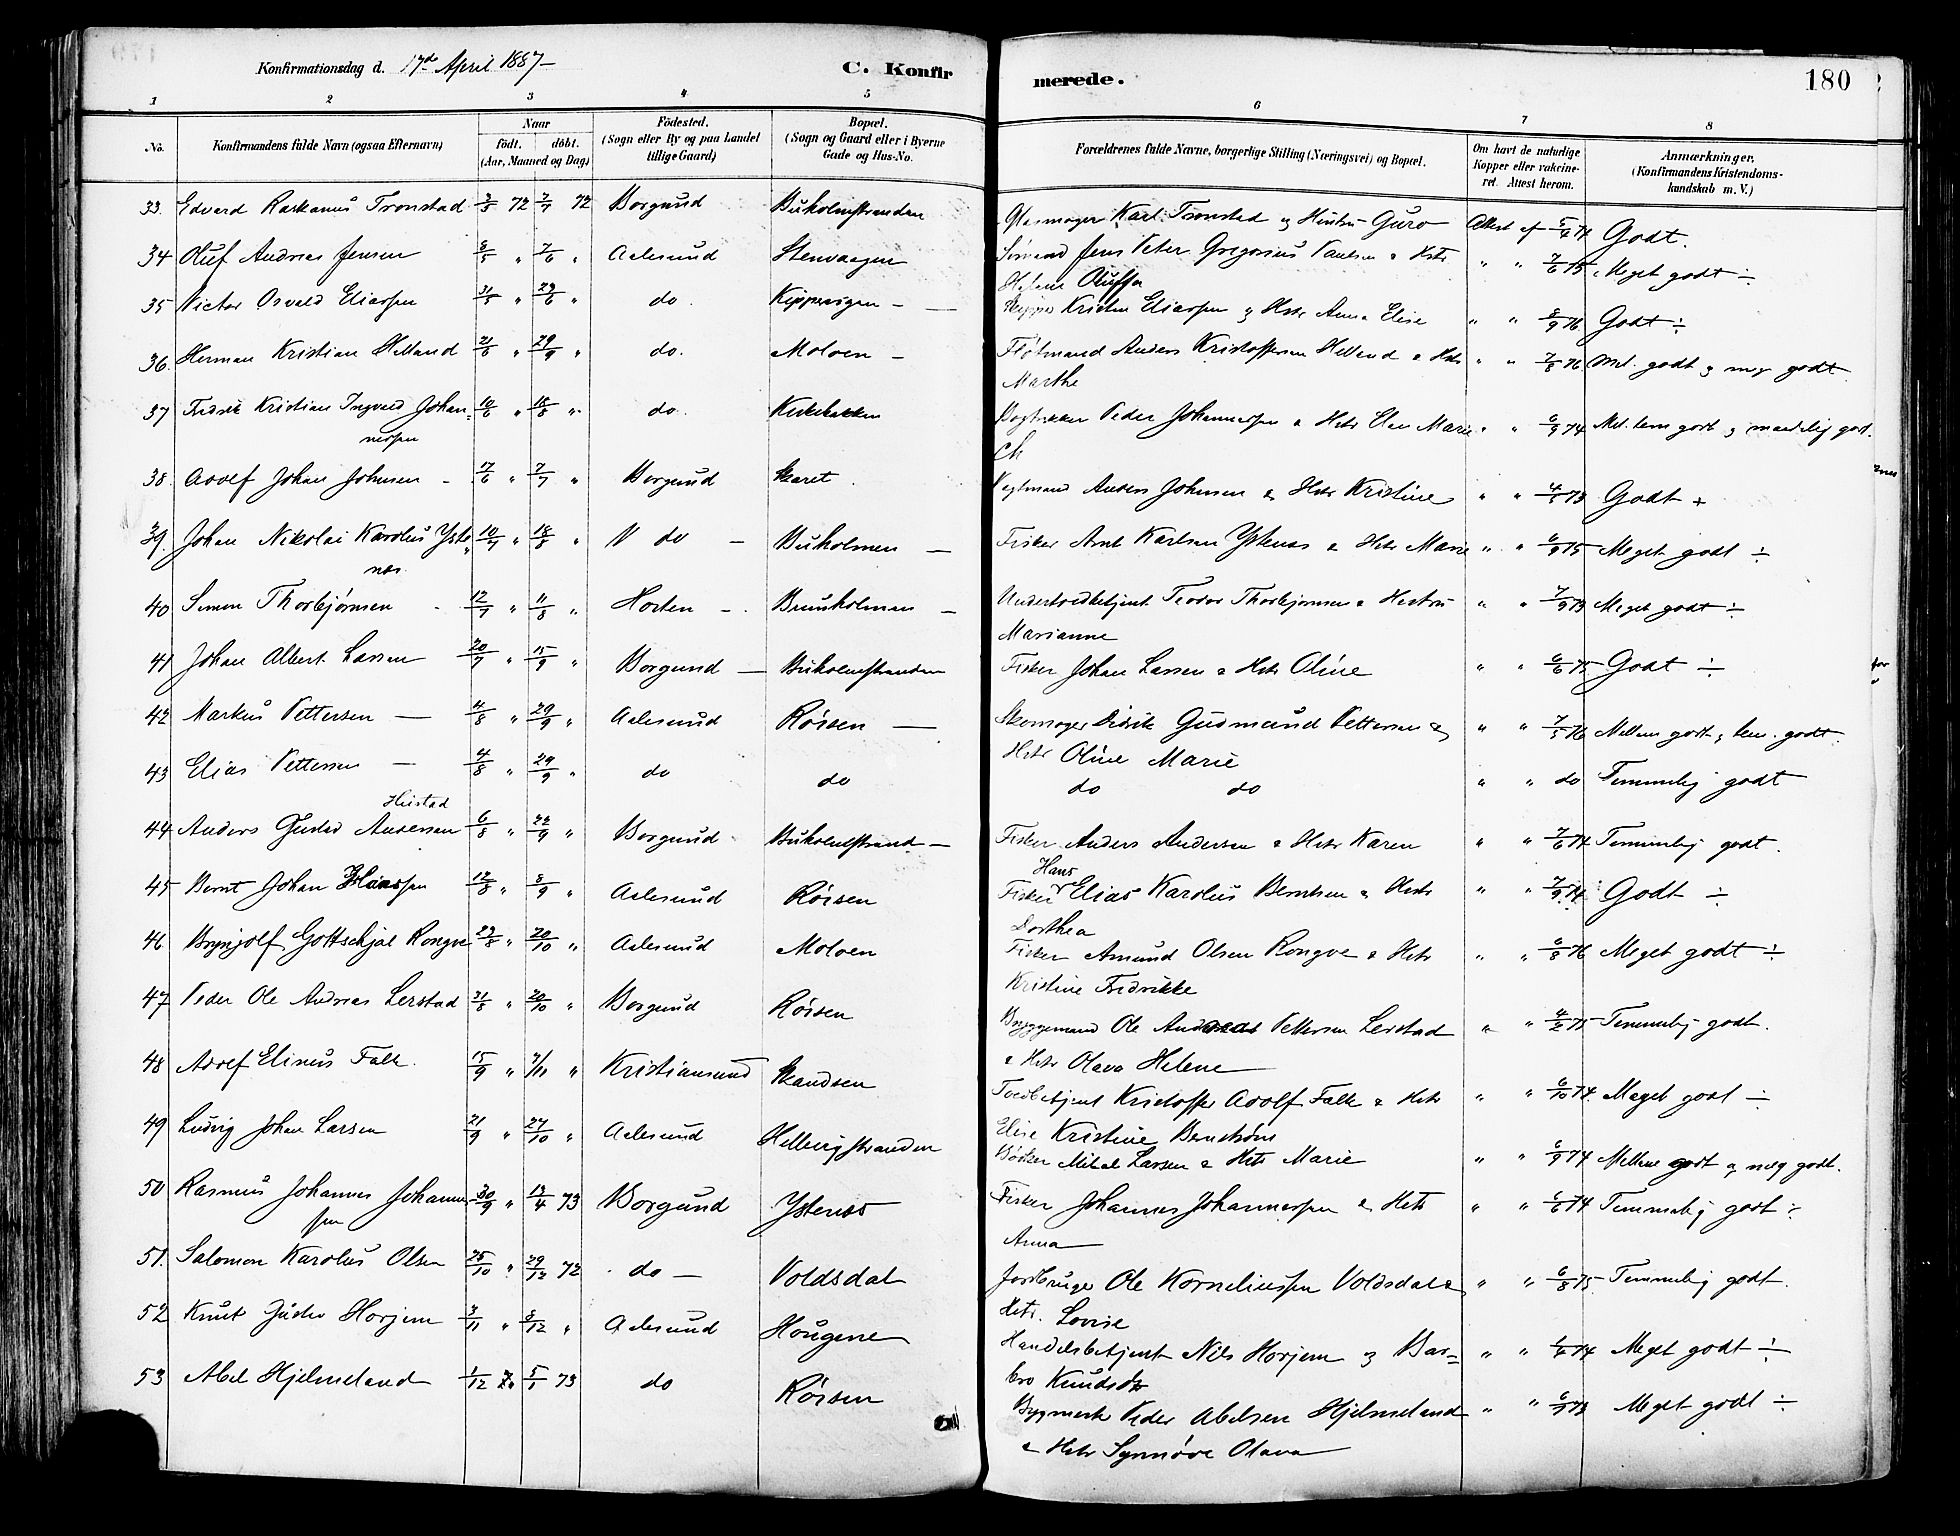 Konfirmationsdag d. 17de April 1887 C. Konfirmerede. 180
1 2 3 4 5 6 7 8
No. Konfirmandens fulde Navn (ogsaa Efternavn) Naar født. døbt. (Aar, Maaned og Dag) Födested. (Sogn eller By og paa Landet tillige Gaard) Bopæl. (Sogn og Gaard eller i Byerne Gade og Hus-No. Forældrenes fulde Navne, borgerlige Stilling (Næringsvei) og Bopæl. Om havt de naturlige Kopper eller vakcineret. Attest herom. Anmærkninger. (Konfirmandens Kristendomskundskab m. V.)
33. Edvard Tronstad 72 72 Borgund Buholmstranden Karl Tronstad og Hustru Guro Attest af Godt.
34 Oluf Andreas Jensen 8/5 " 7/6 " Aalesund Stenvaagen Sømand Jens Peter Gregorius & Hstr " " 7/6 75 Meget godt ÷
Helene Oluffa
35 Victor Osvald Eliassen 31/5 " 29/6 " do. Kippervigen — Skipper Kristen Eliassen og Hstr Anna Elise " " 8/9 76 Godt ÷
36. Herman Kristian Helland 21/6 " 29/9 " do. Moloen — Anders Kristoffersen Helland & Hstr " " 7/8 76 Ml. godt og meg godt
Marthe
37 Fredrik Kristian Ingvald Johan= 10/6 " 18/8 " do. Kirkebakken Peder Johannessen & Hstr Marie " " 6/9 74 Ml. tem godt og maadelig godt.
nessen
38. Adolf Johan Johnsen 17/6 " 7/7 " Borgund Skaret Anders Johnsen & Hstr Kristine " " Godt +
39. Johan Nikolai Karolus Yste= 10/7 " 18/8 " do — Buholmen — Fisker Arnt Karlsen Ystenæs & Hstr Marie " " 6/9 75 Meget godt ÷
næs.
40 Simon Thorbjørnsen 12/7 " 11/8 " Horten — Buholmen — Teodor Thorbjørnsen & Hustru " " 7/9 73 Meget godt ÷
Marianne
41 Johan Albert Larsen 20/7 " 15/9 " Borgund — Buholmstranden Fisker Johan Larsen & Hstr Oline " " 6/6 75 Godt ÷
42 Markus Pettersen — 4/8 " 29/9 " Aalesund Røisen — Skomager Didrik Gudmund Pettersen & " " 7/5 76 Mellem godt og tem. godt.
Hstr Oline Marie
43 Elias Pettersen — 4/8 " 29/9 " do do do do " " do Temmelig godt
Hustad
44 Anders Gustav Andersen 6/8 " 22/9 " Borgund Buholmstrand — Fisker Anders Andersen & Hstr Karen " " 7/6 74 Temmelig godt.
Hans
45 Bernt Johan 12/8 " 8/9 " Aalesund Røisen Fisker Elias Karolus Berntsen & Hstr " " 7/9 74 Godt ÷
Dorthea
46 Brynjolf Gottschjal Rongve 23/8 " 20/10 " Aalesund Moloen Fisker Amund Olsen Rongve & Hstr " " 6/8 76 Meget godt ÷
Kristine Fredrikke
47 Peder Ole Andreas Lerstad 31/8 " 20/10 " Borgund Røisen Bryggemand Ole Andreas Pettersen Lerstad " " 75 Temmelig godt.
& Hstr Olava Helene
48 Adolf Elinus Falk. 15/9 " 7/11 " Kristiansund Skandsen Toldbetjent Kristoffer Adolf Falk & Hstr " " 6/10 74. Meget godt ÷
Elise Kristine
49 Ludvig Johan Larsen 21/9 " 27/10 " Aalesund Hellevigstranden Bødker Mikal Larsen & Hstr Marie " " 6/9 74 Mellem godt og meg godt.
50 Rasmus Johannes Johannes 30/9 " 13/4 73 Borgund Ystenæs Fisker Johannes Johannessen & Hstr " " 6/6 74 Temmelig godt ÷
sen Anna
51. Salomon Karolus Olsen 25/10 " 29/12 72 do — Voldsdal Jordbruger Ole Korneliussen Voldsdal & " " 6/8 75 Temmelig godt.
Hstr. Lovise
52 Knut Gustav Horjem 3/11 " 8/12 " Aalesund Hougene Handelsbetjent Nils Horjem og Bar= " " 74 Meget godt ÷
bro Knudsdtr
53 Abel Hjelmeland 1/12 72 5/1 73 do Røisen Bygmester Peder Abelsen Hjelmeland " " 73 Meget godt ÷
& Hstr Synnøve Olava